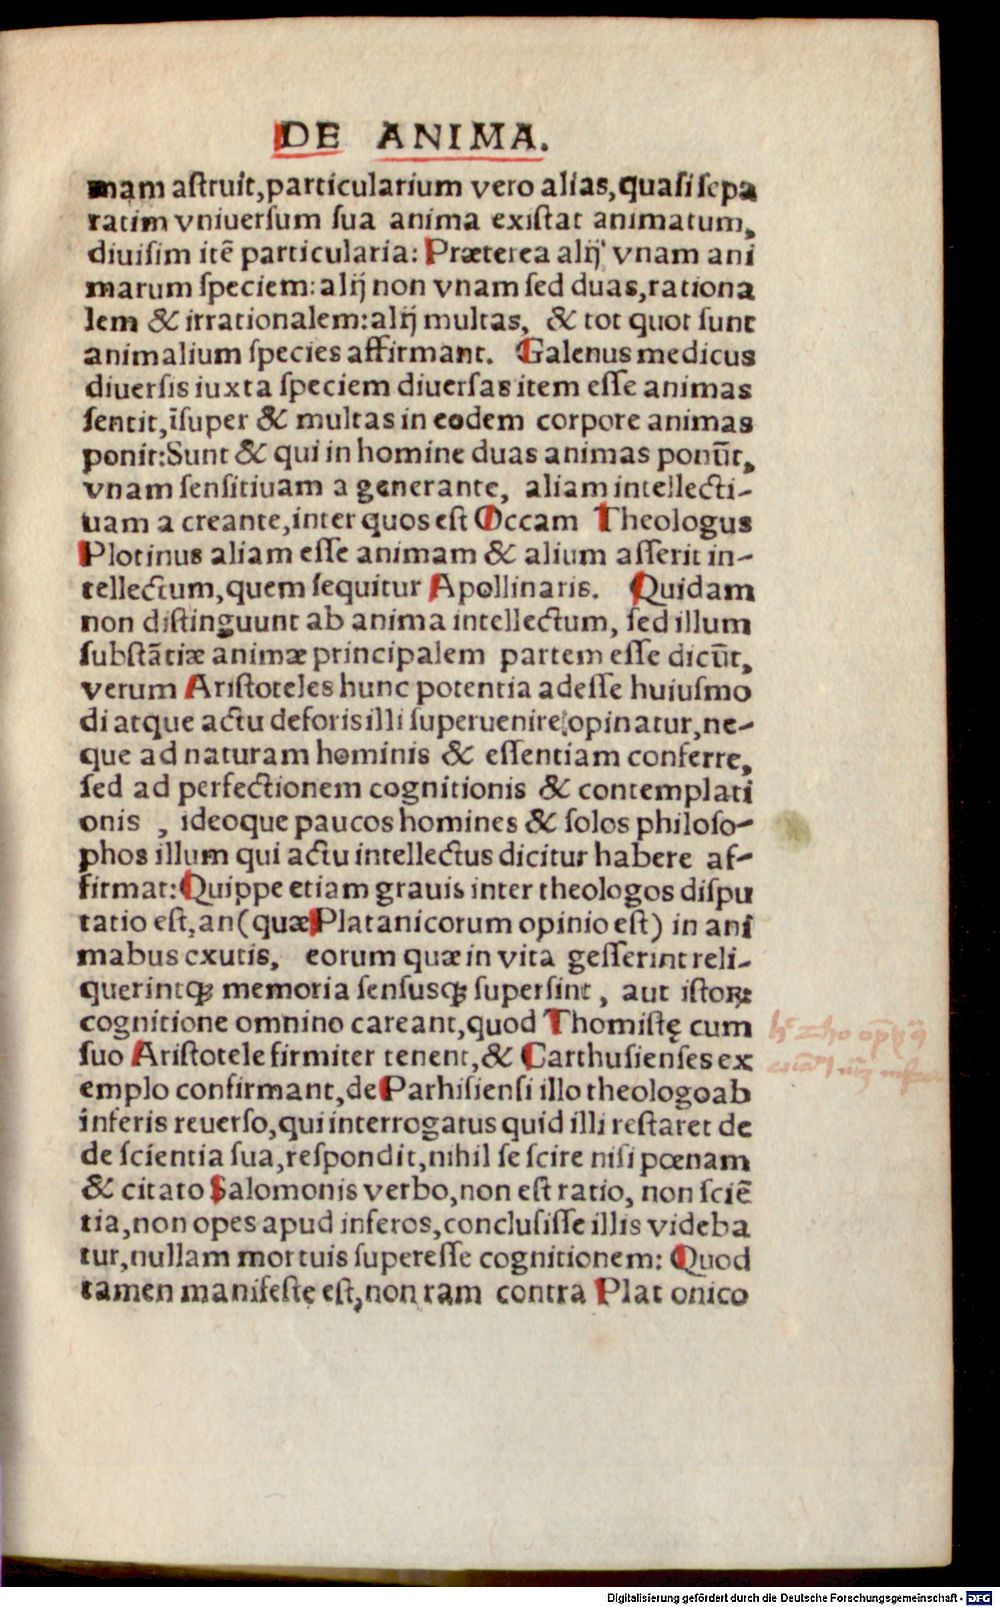 DE ANIMA.
mam aſtruit,particularium vero alias,quaſi ſepa
ratim vniuerſum ſua anima exiſtat animatum,
diuiſim itē particularia: Præterea alij vnam ani
marum ſpeciem: alij non vnam ſed duas,rationa
lem & irrationalem:alij multas, & tot quot ſunt
animalium ſpecies affirmant. Galenus medicus
diuerſis iuxta ſpeciem diuerſas item eſſe animas
ſentit,īſuper & multas in eodem corpore animas
ponit:Sunt & qui in homine duas animas ponūt,
vnam ſenſitiuam a generante, aliam intellecti-
uam a creante,inter quos eſt Occam Theologus
Plotinus aliam eſſe animam & alium aſſerit in-
tellectum,quem ſequitur Apollinaris. Quidam
non diſtinguunt ab anima intellectum, ſed illum
ſubſtātiæ animæ principalem partem eſſe dicūt,
verum Ariſtoteles hunc potentia adeſſe huiuſmo
di atque actu deforis illi ſuperuenire opinatur,ne-
que ad naturam hominis & eſſentiam conferre,
ſed ad perfectionem cognitionis & contemplati
onis , ideoque paucos homines & ſolos philoſo-
phos illum qui actu intellectus dicitur habere af-
firmat:Quippe etiam grauis inter theologos diſpu
tatio eſt,an(quæ Platanicorum opinio eſt) in ani
mabus exutis, eorum quæ in vita geſſerint reli-
querintq; memoria ſenſusq; ſuperſint, aut iſtoꝝ
cognitione omnino careant,quod Thomiſtę cum
ſuo Ariſtotele firmiter tenent,& Carthuſienſes ex
emplo confirmant,de Parhiſienſi illo theologo ab
inferis reuerſo,qui interrogatus quid illi reſtaret de
de ſcientia ſua,reſpondit,nihil ſe ſcire niſi pœnam
& citato Salomonis verbo,non eſt ratio, non ſciē
tia,non opes apud inferos,concluſiſſe illis videba
tur,nullam mortuis ſupereſſe cognitionem: Quod
tamen manifeſte eſt,non tam contra Plat onico
Digitalisierung gefördert durch die Deutsche Forschungsgemeinschaft - DFG